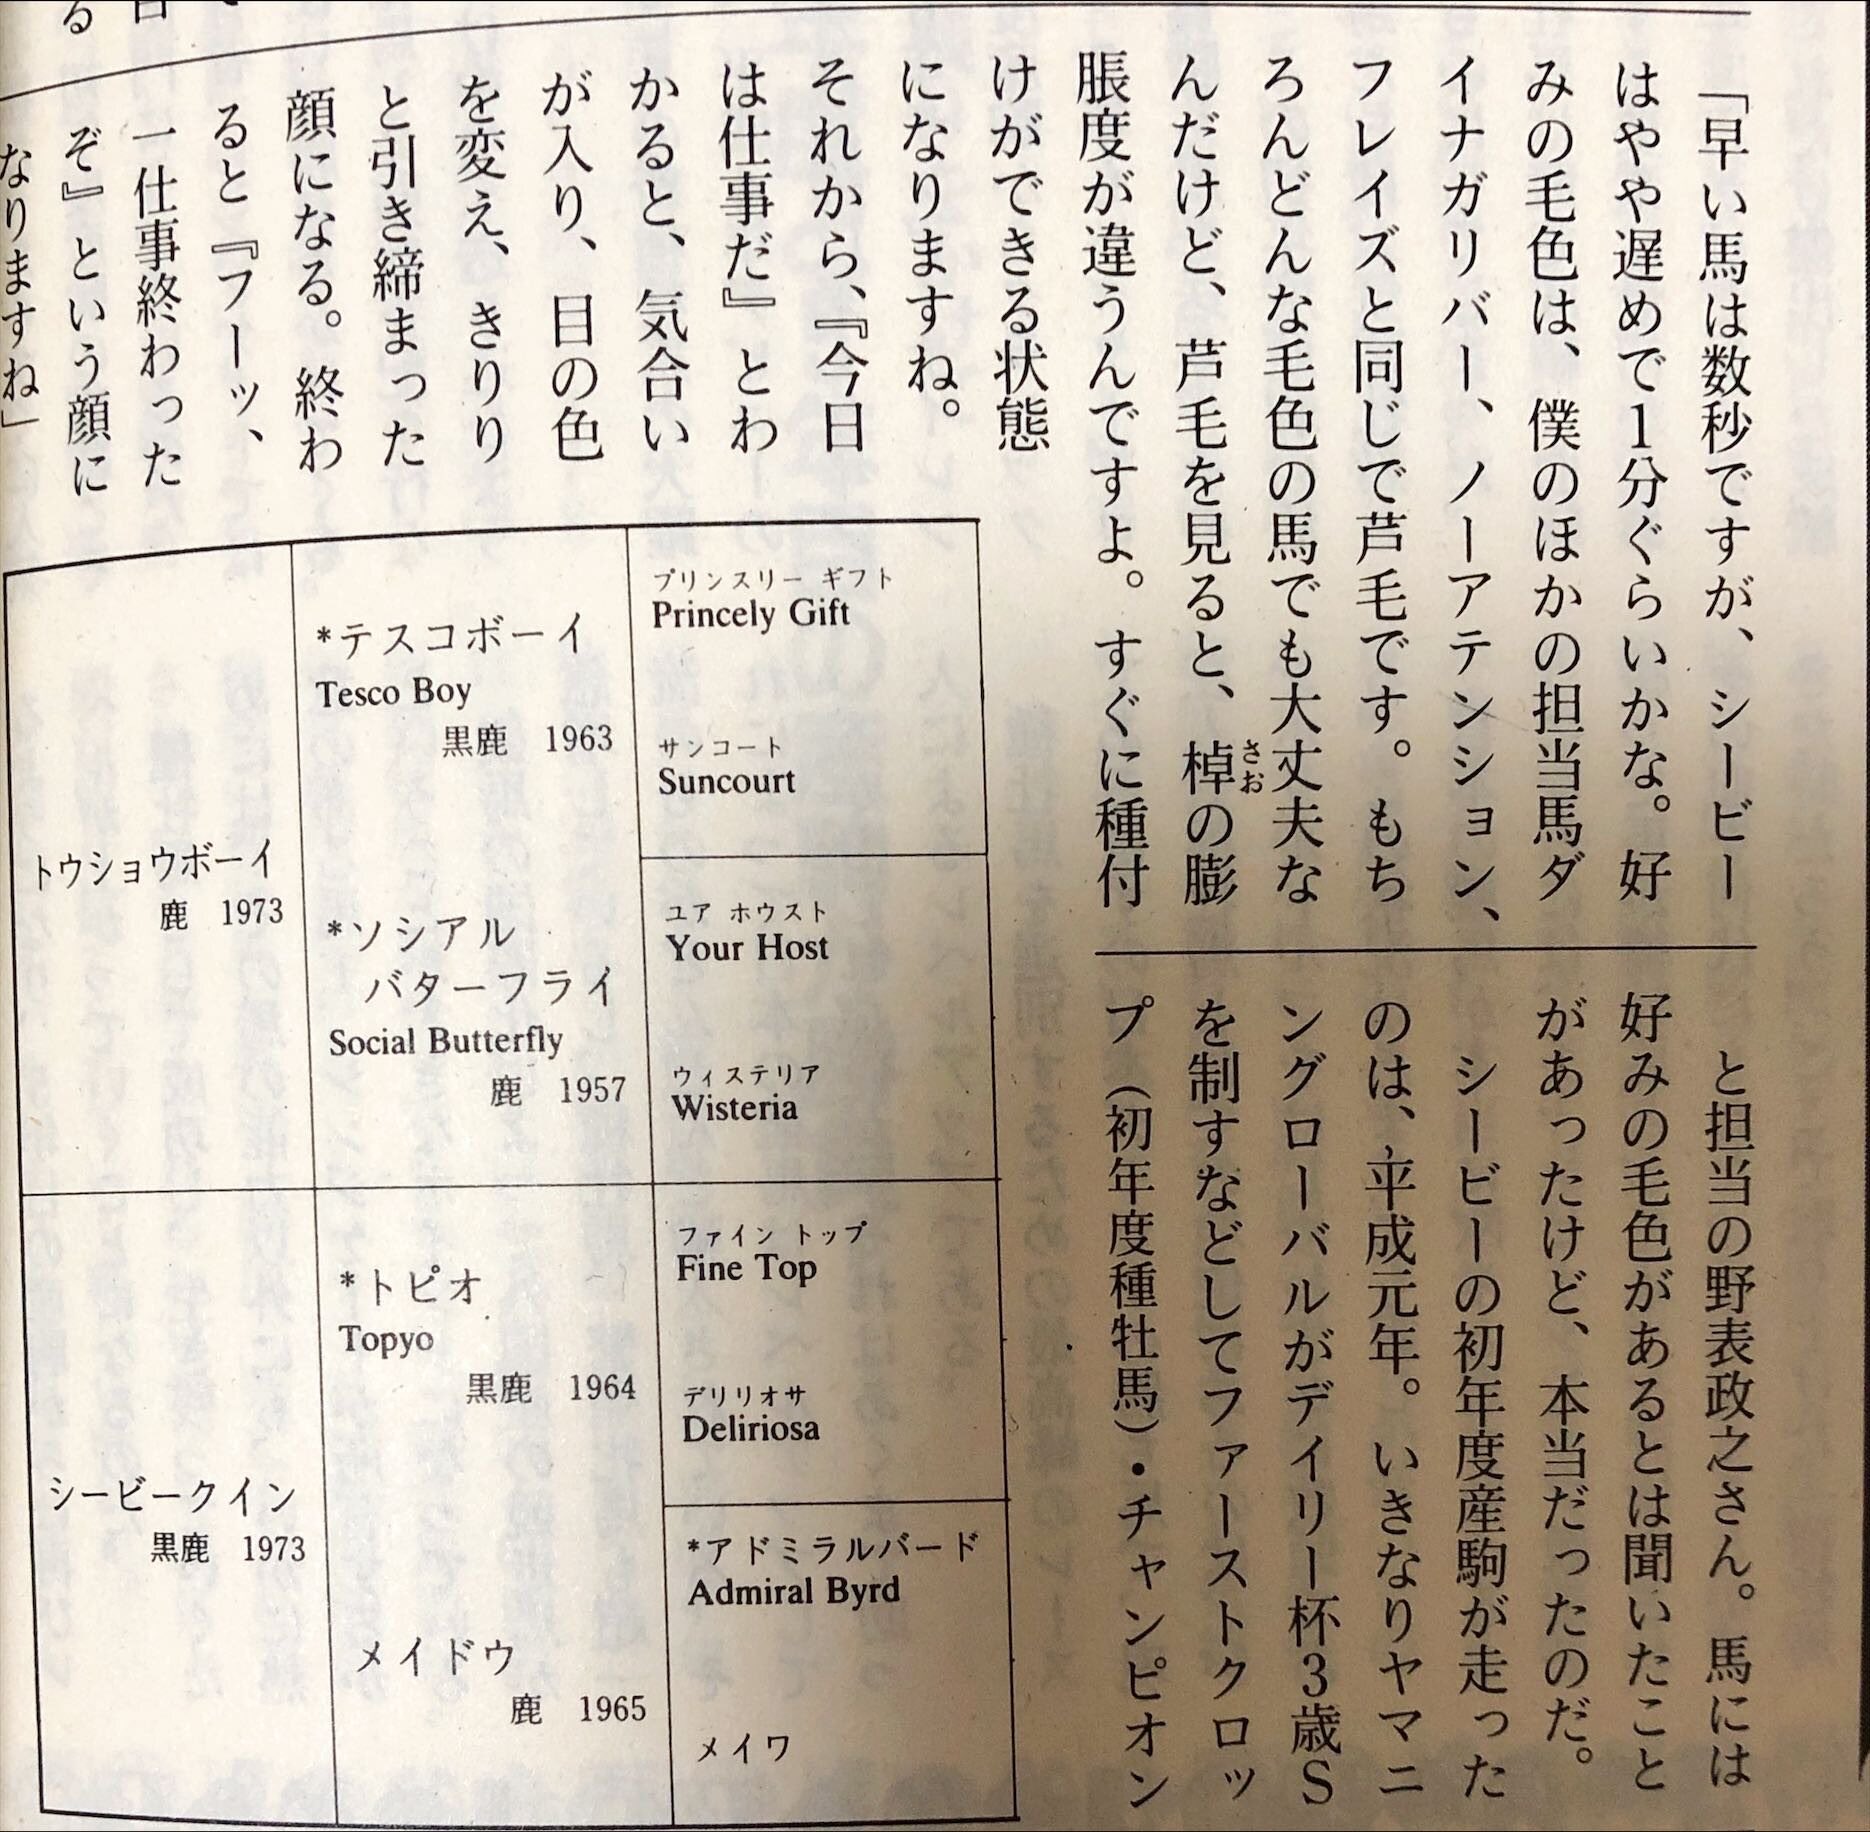 「早い馬は数秒ですが、シービー
はやや遅めで1分ぐらいかな。好
みの毛色は、僕のほかの担当馬ダ
イナガリバー、ノーアテンション、
フレイズと同じで芦毛です。もち
ろんどんな毛色の馬でも大丈夫な
んだけど、芦毛を見ると、棹の膨
さお
脹度が違うんですよ。すぐに種付
けができる状態
になりますね。
それから、『今日
は仕事だ』とわ
かると、気合い
が入り、目の色
を変え、きりり
と引き締まった
顔になる。終わ
ると『フーッ、
一仕事終わった
ぞ』という顔に
なりますね」
と担当の野表政之さん。馬には
好みの毛色があるとは聞いたこと
があったけど、本当だったのだ。
シービーの初年度産駒が走った
のは、平成元年。いきなりヤマニ
ングローバルがデイリー杯3歳S
を制すなどしてファーストクロッ
プ（初年度種牡馬）・チャンピオン
トウショウボーイ
鹿 1973
*テスコボーイ
Tesco Boy
黒鹿 1963
プリンスリー ギフト
Princely Gift
サンコート
Suncourt
*ソシアル
バターフライ
Social Butterfly
鹿 1957
ユア ホウスト
Your Host
ウィステリア
Wisteria
シービークイン
黒鹿 1973
*トピオ
Topyo
黒鹿 1964
ファイン トップ
Fine Top
デリリオサ
Deliriosa
メイドウ
鹿 1965
*アドミラルバード
Admiral Byrd
メイワ